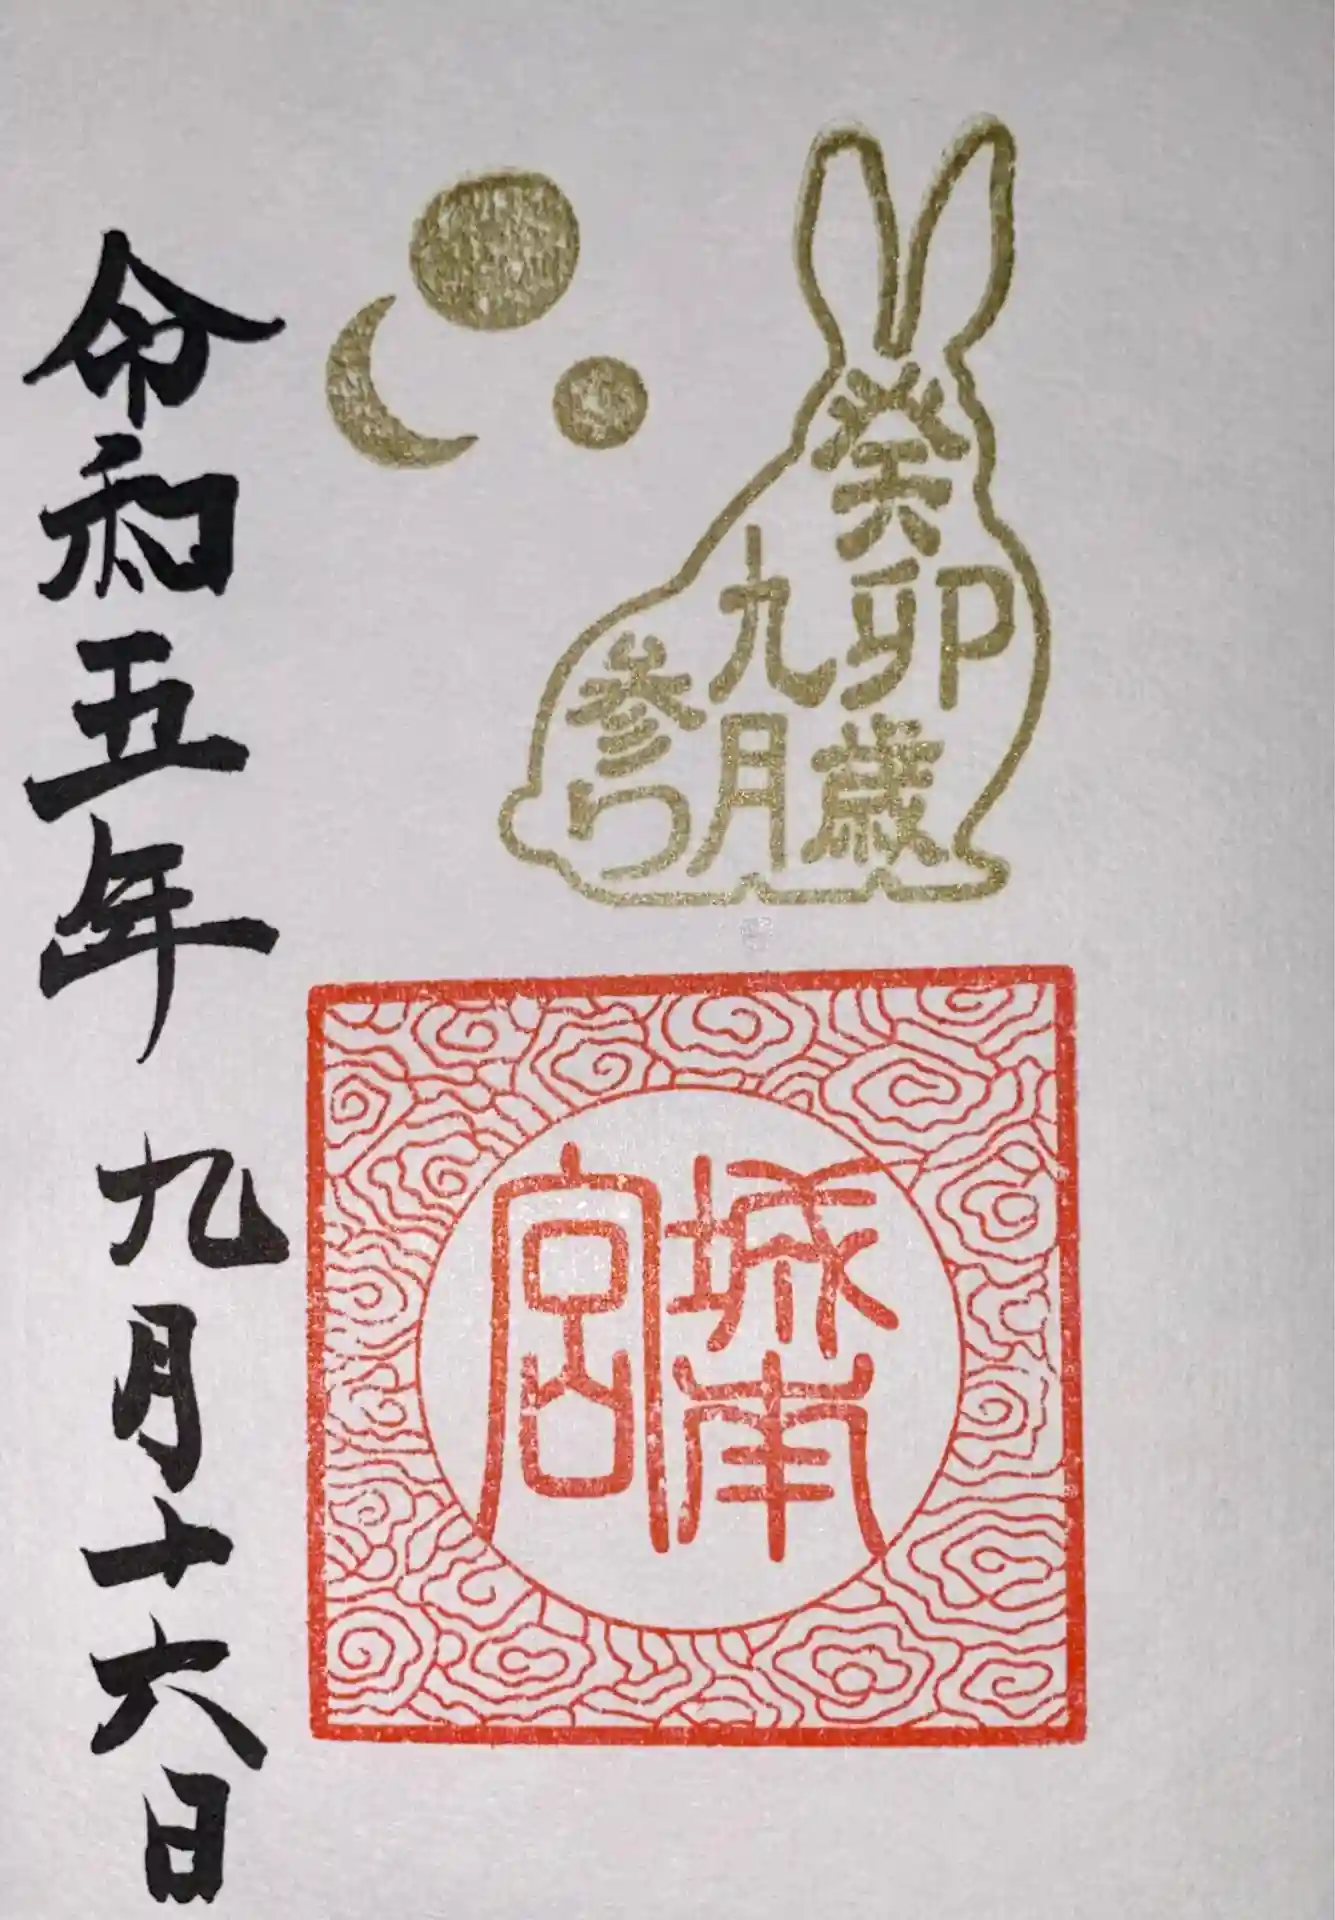 癸卯歳
九月
参り
城南
宮
令和五年 九月十六日